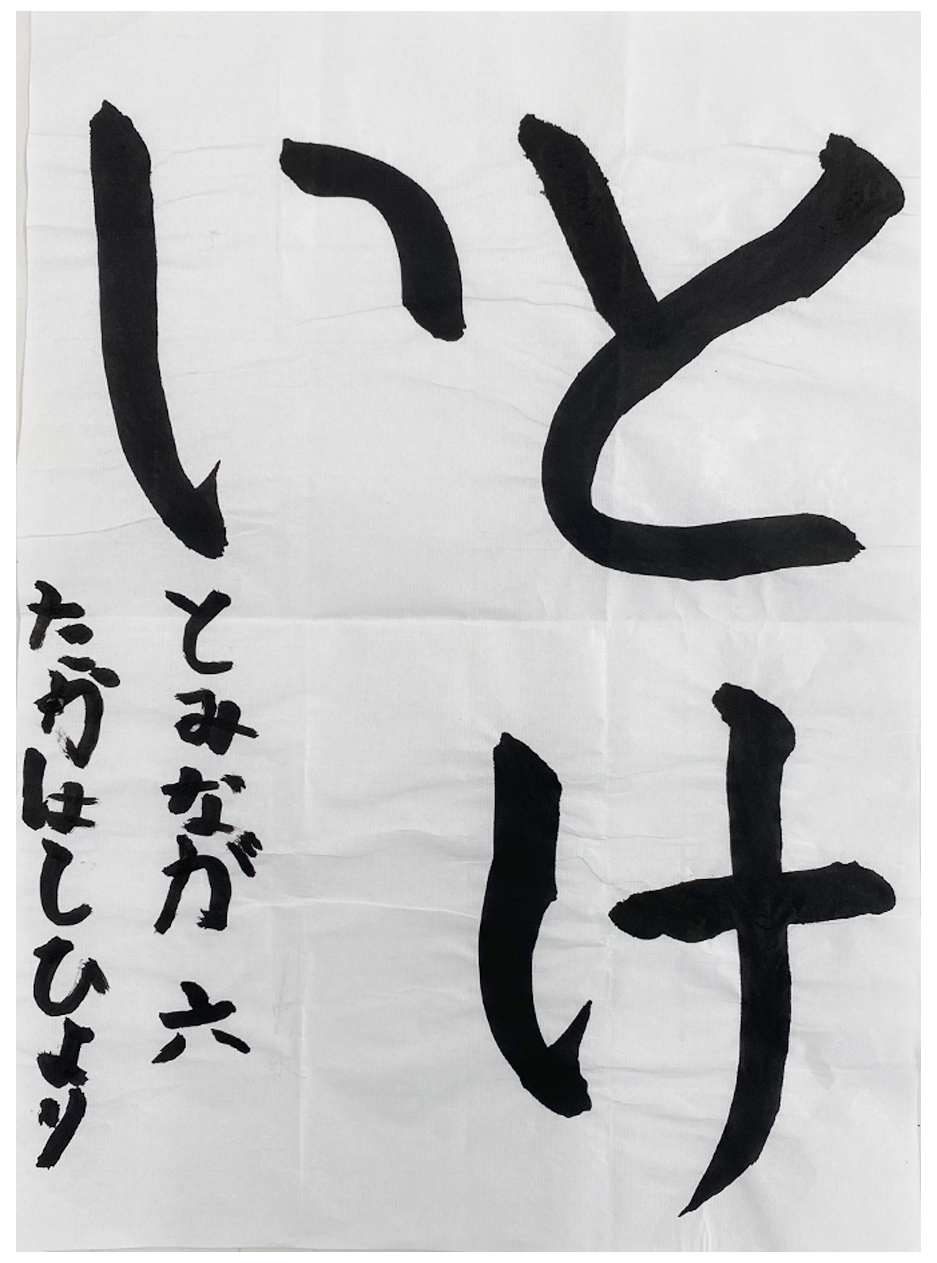 とけ
い
とみなが 六
たかはしひより